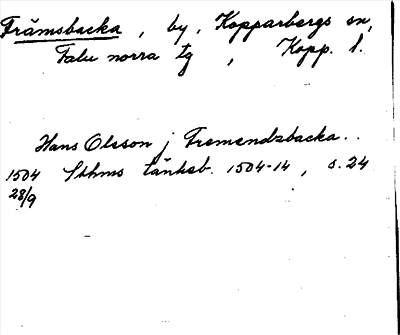 Främsbacka, by, Kopparbergs sn,
Falu norra tg, Kopp. l.
Hans Olsson j Fremendzbacka..
1504 Sthms tänkeb. 1504-14, s. 24
28/9